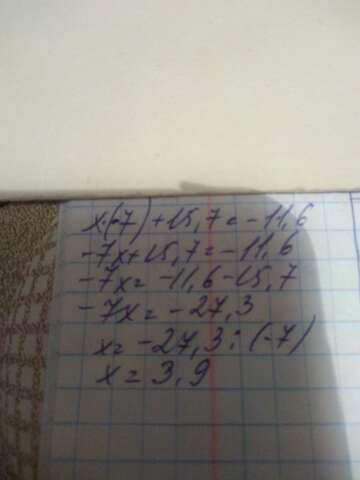 x·(-7)+15,7=-11,6
-7x+15,7=-11,6
-7x=-11,6-15,7
-7x=-27,3
x=-27,3:(-7)
x=3,9